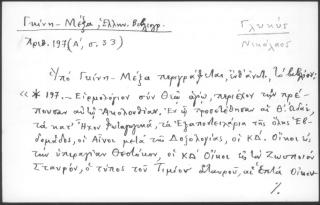 Γκίνη - Μέξα Ἑλλην. Βιβλιογρ.
Γλυκύς
Νικόλαος
Ἀριθ. 197 (Α', σ. 33)
Ὑπὸ Γκίνη - Μέξα περιγράφεται, ἐνθ' ἀνωτ., τὸ βιβλίον:
« * 197. — Εἱρμολόγιον σὺν Θεῷ ἁγίῳ, περιέχον τὴν πρέ-
πουσαν αὐτῷ Ἀκολουθίαν. Ἐν ᾧ προσετέθησαν αἱ Θ' ᾨδαί,
τὰ κατ' Ἦχον
τὰ Ἐξαποστειλάρια τῆς ὅλης Ἑβ-
δομάδος, οἱ Αἶνοι μετὰ τῆς Δοξολογίας, οἱ ΚΔ. Οἶκοι εἰς
τὴν ὑπεραγίαν Θεοτόκον, οἱ ΚΔ. Οἶκοι εἰς τὸν Ζωοποιὸν
Σταυρόν, ὁ τύπος τοῦ Τιμίου Σταυροῦ, αἱ ἑπτὰ Οἰκου-
./.